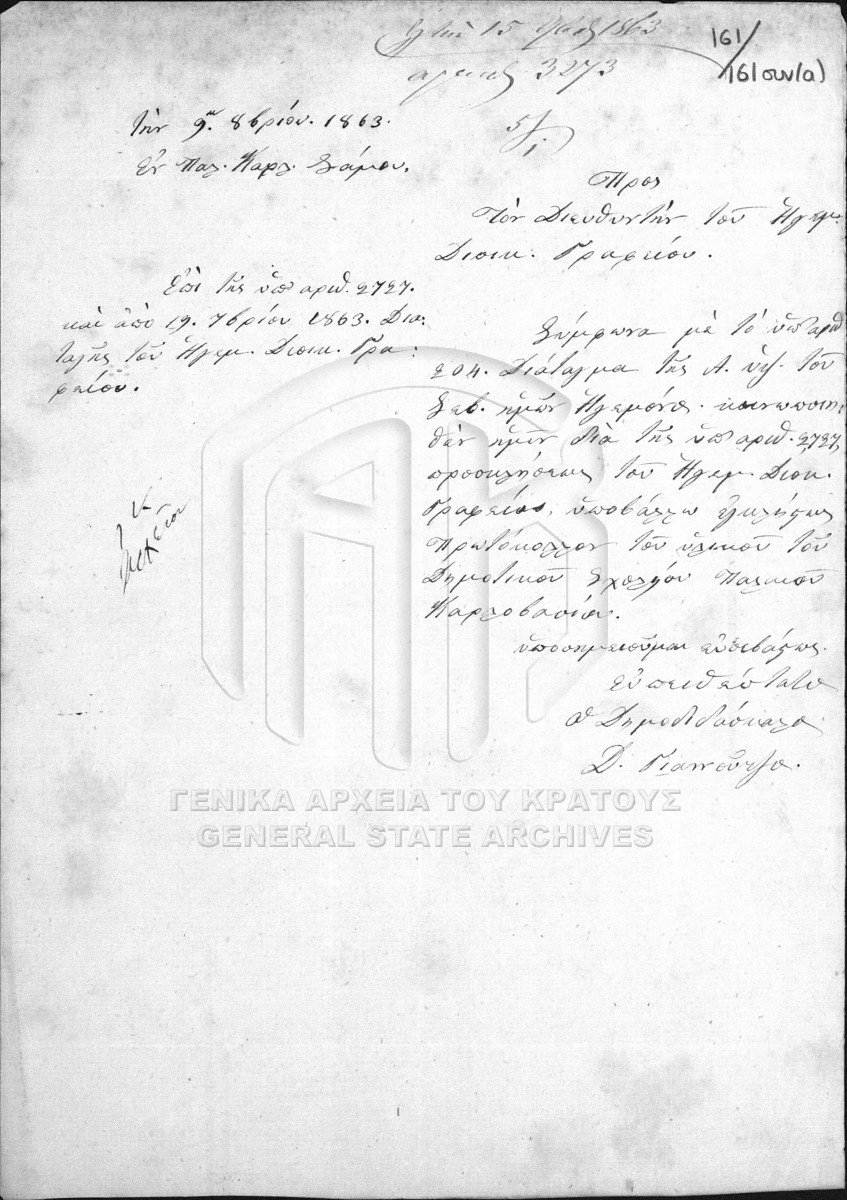 15 1863
3273
161/
161συν(α)
5/1
τὴν 9ην 8βρίου. 1863.
Ἐν Παλ. Καρλ. Σάμου.
Πρὸς
Τὸν Διευθυντὴν τοῦ Ἡγεμ.
Διοικ. Γραφείου.
Ἐπὶ τῆς ὑπ' αριθ. 2727.
καὶ ἀπὸ 19. 7βρίου 1863. Δια:
ταγῆς τοῦ Ἡγεμ. Διοικ. Γρα:
φείου.
Σύμφωνα μὲ τὸ ὑπ' αριθ
204. Διάταγμα τῆς Α. ὑψ. τοῦ
Σεβ. ἡμῶν Ἡγεμόνος. κοινοποιη:
θὲν ἡμῖν διὰ τῆς ὑπ' αριθ. 2727,
προσκλήσεως τοῦ Ἡγεμ. Διοικ.
Γραφείου, ὑποβάλλω ἐγκλείστως
Πρωτόκολλον τοῦ ὑλικοῦ τοῦ
Δημοτικοῦ Σχολείου Παλαιοῦ
Καρλοβασίου.
ὑποσημειοῦμαι εὐσεβάστως.
Εὐπειθέστατος
Ὁ Δημοδιδάσκαλος
Δ. Γιαννούτσος.
ΓΕΝΙΚΑ ΑΡΧΕΙΑ ΤΟΥ ΚΡΑΤΟΥΣ
GENERAL STATE ARCHIVES